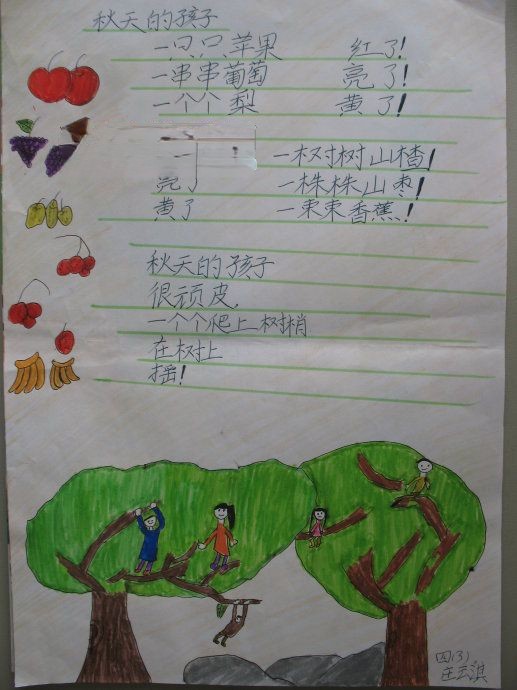 秋天的孩子
一只只苹果 红了!
一串串葡萄 亮了!
一个个梨 黄了!
一树树山楂!
亮了 一株株山枣!
黄了 一束束香蕉!
秋天的孩子
很顽皮,
一个个爬上树梢
在树上
摇!
四(3)
庄云淇